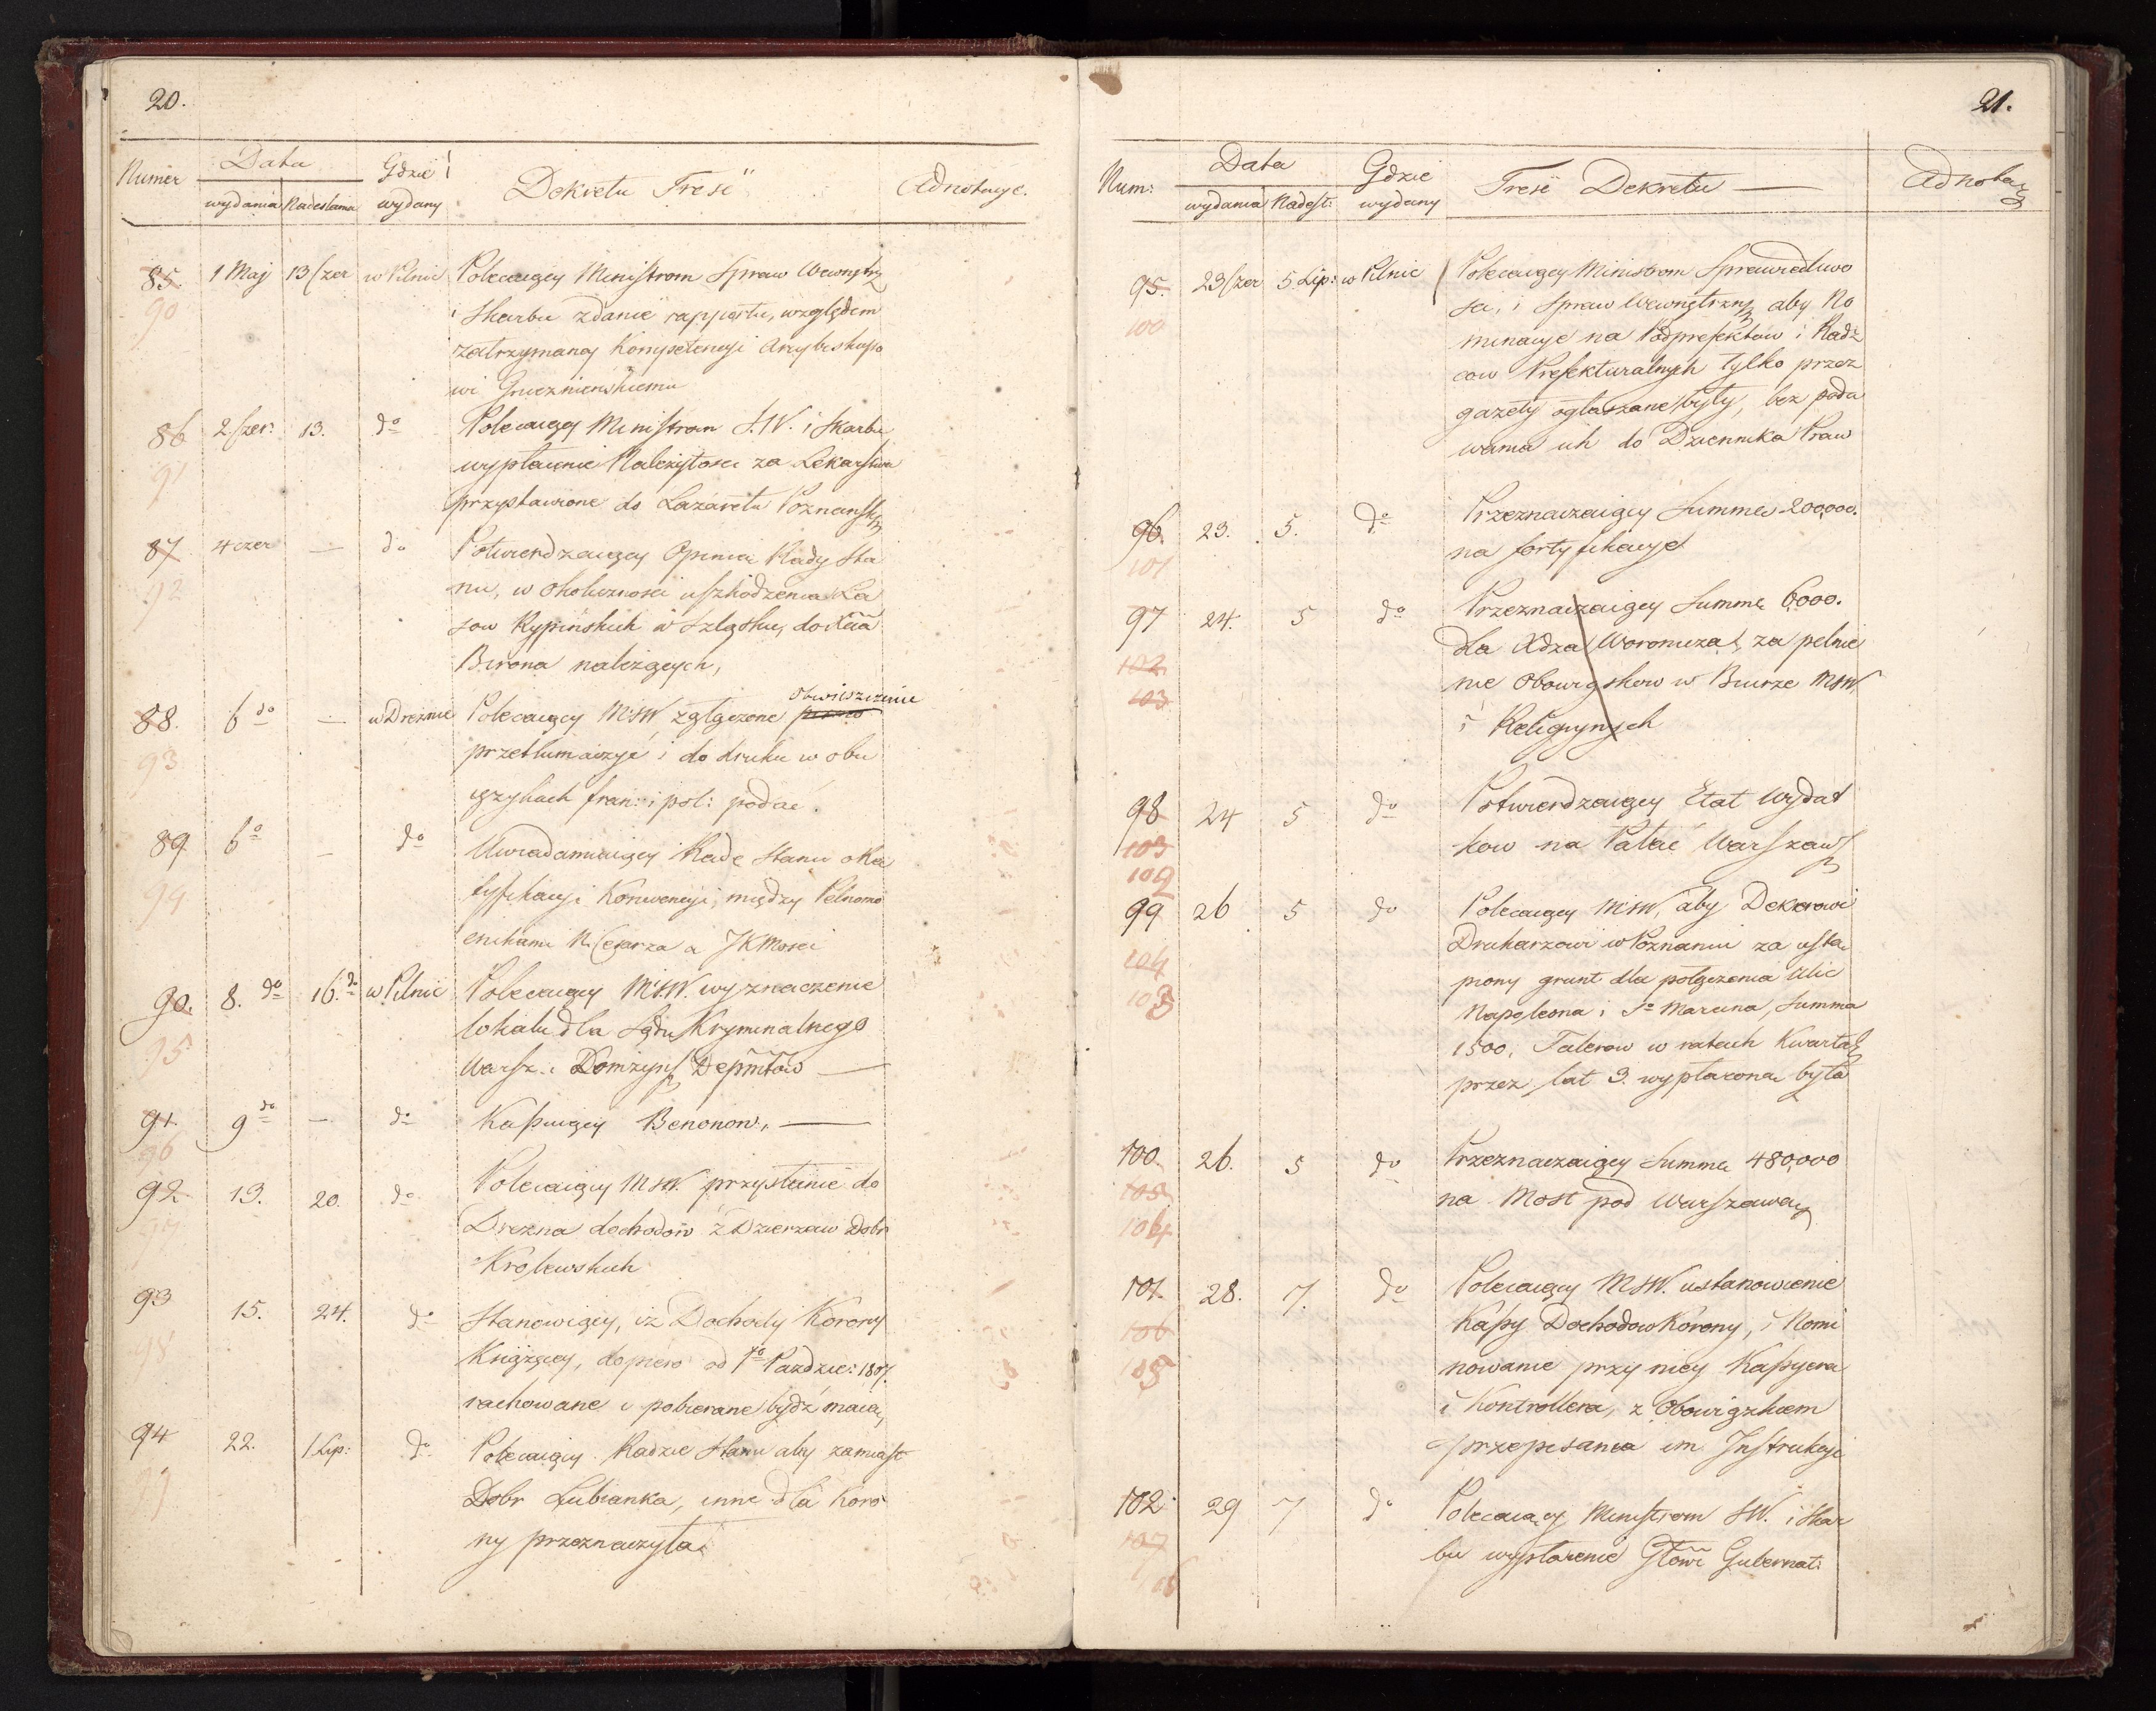 20.
Numer Data Gdzie Dekretu Treść Adnotacye.
wydania Nadesłania wydany
85. 1 Maj 13 Czer w Pilnic Polecaiący Ministrom Spraw Wewnętrz
90 i Skarbu zdanie rapportu, względem
zatrzymaney Kompetencyi Arcybiskupo
wi Gnieznienskiemu
86 2 Czer: 13. do Polecaiący Ministrom S.W. i Skarbu
91 wypłacenie Należytosci za Lekarstwa
przystawione do Lazaretu Poznansk
87 4 czer — do Potwierdzaiący Opinią Rady Sta
92 nu, w okoliczności uszkodzenia La
sow Rypińskich w Szląsku, do Xcia
Birona należących,
88. 6 do — w Dreznie Polecaiący MSW załączone pismo obwieszczenie
93 przetłumaczyć i do druku w obu
ięzykach fran: i pol: podać.
89. 6 o — do Uwiadamiaiący Radę Stanu o Ra
94 tyfikacyi Konwencyi, między Pełnomo
cnikami N. Cesarza a JKMosci
90. 8. do 16. do w Pilnic Polecaiący MSW. wyznaczenie
95 lokalu dla Sądu Kryminalnego
Warsz. i Łomżyńs Depmtów —
91. 9 do — do Kassuiący Benonow, —
96
92 13. 20. do Polecaiący MSW. przysłanie do
97 Drezna dochodów z Dzierzaw Dobr
Królewskich
93 15. 24. do Stanowiący, iż Dochody Korony
98 Książęcey, dopiero od 1go Paździe: 1807.
rachowane i pobierane bydź maią,
94 22. 1 Lip: do Polecaiący Radzie Stanu aby zamiast
99 Dobr Lubianka, inne dla Koro
ny przeznaczyła
21.
Num: Data Gdzie Treść Dekretu — Adnotac
wydania Nadesł: wydany
95. 23 Czer 5. Lip: w Pilnic Polecaiący Ministrom Sprawiedliwo
100 sci, i Spraw Wewnętrzny aby No
minacye na Podprefektow i Radz
cow Prefekturalnych tylko przez
gazety ogłaszane były, bez poda
wania ich do Dziennika Praw
96. 23. 5. do Przeznaczaiący Summę 200,000.
101 na fortyfikacye
97 24. 5 do Przeznaczaiący Summę 6,000.
102 dla Xdza Woronicza, za pełnie
103 nie Obowiązkow w Biurze MSW.
i Religiynych
98 24 5 do Potwierdzaiący Etat Wydat
103 kow na Pałac Warszaws
102
99 26 5 do Polecaiący MSW, aby Dekerowi
104 Drukarzowi w Poznaniu za ustą
103 piony grunt dla połączenia Ulic
Napoleona i So Marcina, Summa
1500, Talerow w ratach Kwarta
przez lat 3. wypłacona była
100. 26. 5 do Przeznaczaiący Summę 480,000
105 na Most pod Warszawą
104
101. 28. 7. do Polecaiący MSW. ustanowienie
106 Kassy Dochodow Korony, i Nomi
105 nowanie przy niey Kassyera
i Kontrollera, z Obowiązkiem
przepisania im Instrukcyi
102 29 7 do Polecaiący Ministrom SW. i Skar
107 bu wypłacenie Głowe Gubernat:
106